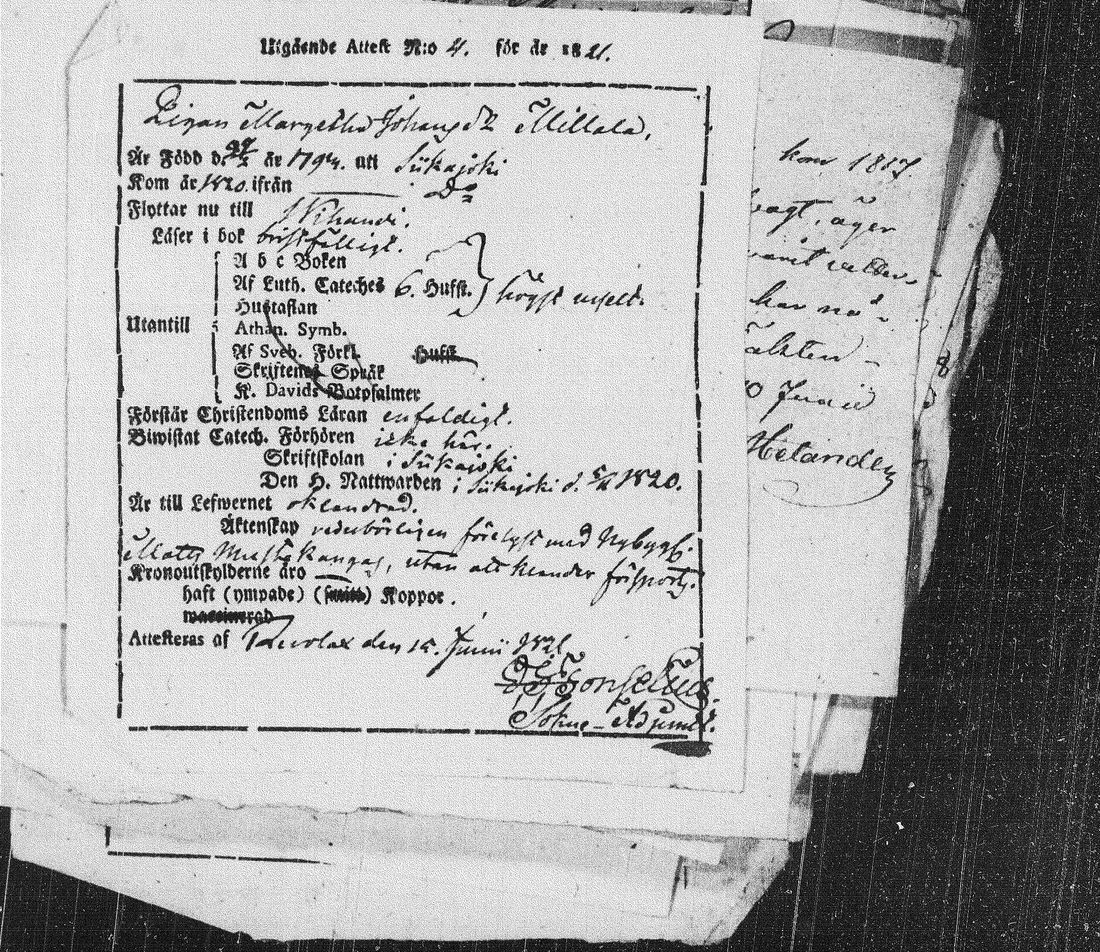 Utgående Attest N:o 4. för år 1821.
Pigan Margetha Johansdr Millala,
Är Född d. är 1794. att Siikajoki
Kom år 1820. ifrån Do
Flyttar nu till Vihandi.
Läser i bok bristfälligt.
A b c Boken
Af Luth. Cateches 6. Hufst. högst uselt.
Hustaflan
Utantill
Athan. Symb.
Af Sveb. Förkl. Hufst
Skriftenes Språk
K. Davids Botpsalmer
Förstår Christendoms Läran enfaldigt.
Biwistat Catech. Förhören icke här.
Skriftskolan i Siikajoki
Den H. Nattwarden i Siikajoki d. 1820.
Är till Lefwernet oklandrad.
Äktenskap vederbörligen förelyst med Nybygg.
Matts kangas, utan att klander försports.
Kronoutskylderne äro
haft (ympade) Koppor.
Attesteras af den 15. Junii 1821
Sokne-Adjunct.
kom 1817.
vogt, äger
varit
har nå
Junii
Helander